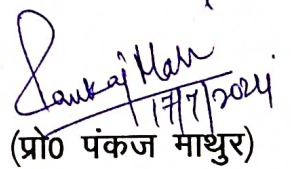 Pankaj Math
17/7/2024
(प्रो0 पंकज माथुर)